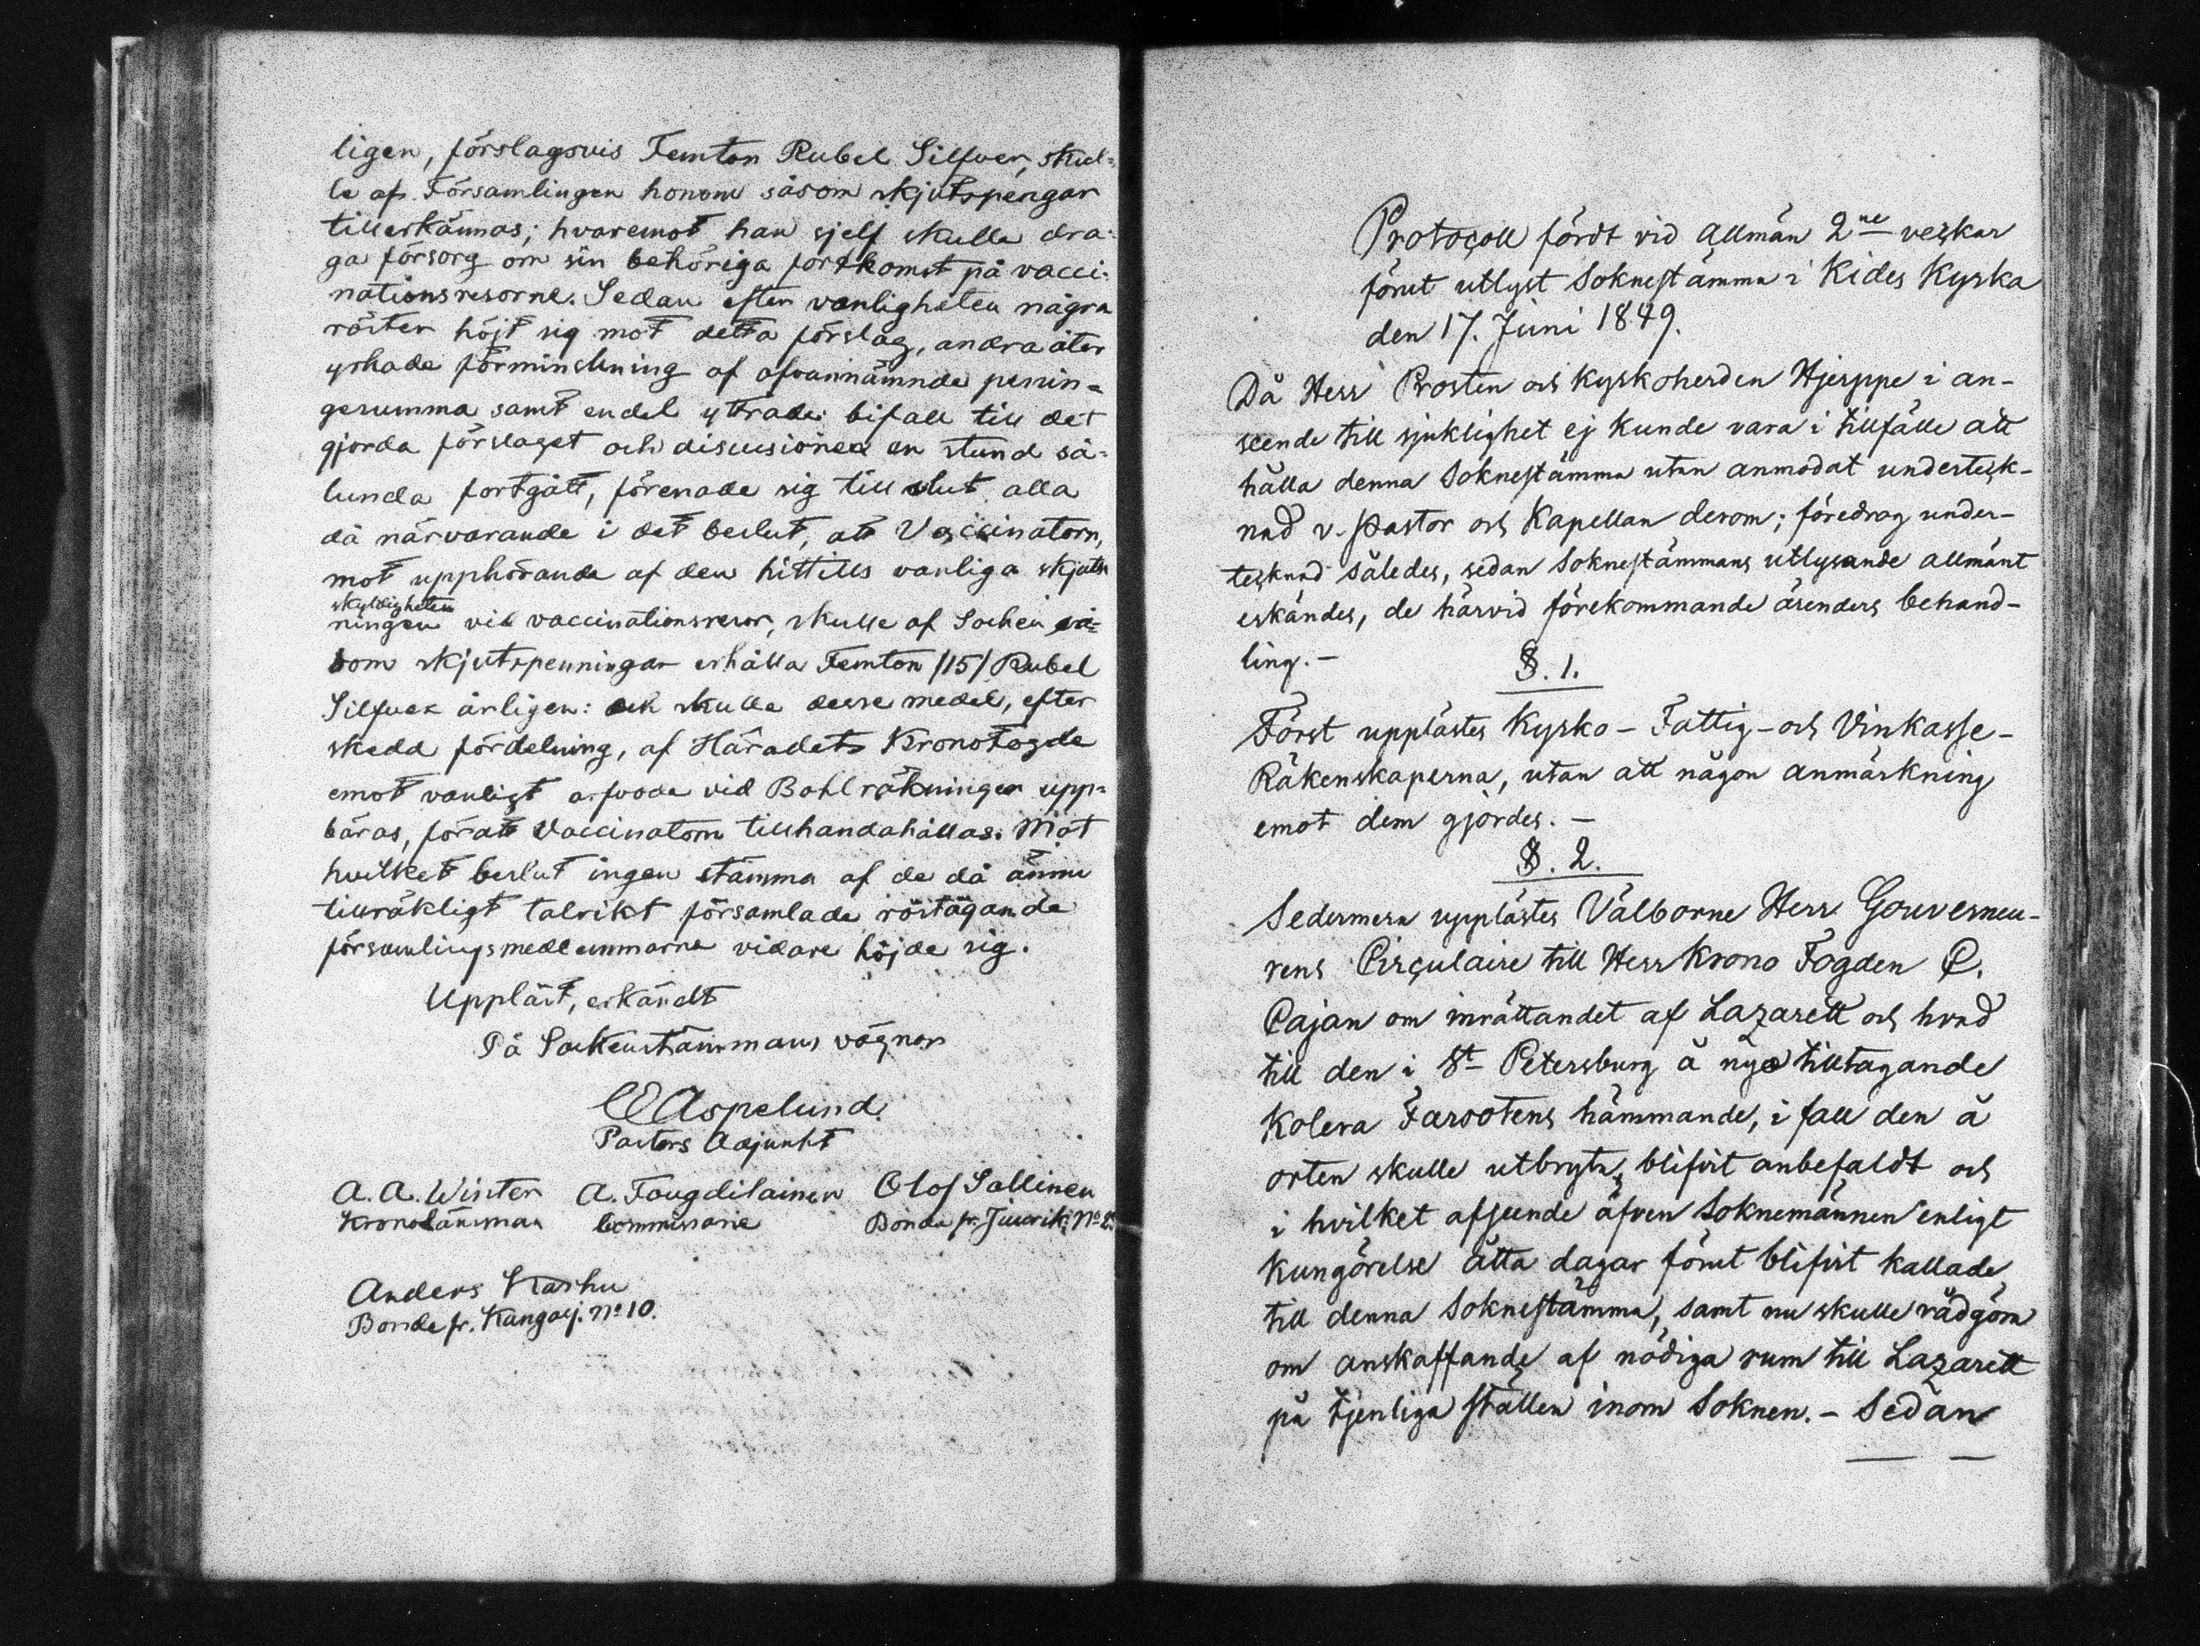 ligen, förslagsvis Femton Rubel Silfver, skul-
le af Församlingen honom såsom skjutspengar
tillerkännas; hvaremot han sjelf skulle dra-
ga försorg om sin behöriga fortkomst på vacci-
nationsresorne. Sedan efter vanligheten några
röster höjt sig mot detta förslag, andra åter
yrkade förminskning af ofvannämnde pennin-
gesumma samt endel yttrade bifall till det
gjorda förslaget och discusionen en stund så-
lunda fortgått, förenade sig till slut alla
då närvarande i det beslut, att Vaccinatorn,
mot upphörande af den hittills vanliga skjuts
skyldigheten
ningen vid vaccinationsresor, skulle af Socken så-
som skjutspenningar erhålla Femton /15/ Rubel
Silfver årligen: och skulle desse medel, efter
skedd fördelning, af Häradets Kronofogde
emot vanligt arfvode vid Bohlräkningen upp-
bäras, föratt Vaccinatorn tillhandahållas. Mot
hvilket beslut ingen stämma af de då ännu
tillräkligt talrikt församlade röstägande
församlingsmedlemmarne vidare höjde sig.
Uppläst, erkändt
På Sockenstämmans vägnar
CE Aspelund
Pastors Adjunkt
A. A. Winter A. Tougdilainen Olof Sallinen
Kronolänsman Commissarie Bonde fr. Juurik. No 2.
Anders Karhu
Bonde fr. Kangasj. No 10.
Protocoll fördt vid allmän 2ne veckor
förut utlyst Soknestämma i Kides Kyrka
den 17. Juni 1849.
Då Herr Prosten och Kyrkoherden Hjerppe i an-
seende till sjuklighet ej kunde vara i tillfälle att
hålla denna Soknestämma utan anmodat underteck-
nad v. Pastor och Kapellan derom; föredrog under-
tecknad således, sedan Soknestämmans utlysande allmänt
erkändes, de härvid förekommande ärenders behand-
ling. –
§. 1.
Först upplästes Kyrko- Fattig- och Vinkasse-
Räkenskaperna, utan att någon anmärkning
emot dem gjordes. –
§. 2.
Sedermera upplästes Välborne Herr Gouverneu-
rens Circulaire till Herr Krono Fogden C.
Cajan om inrättandet af Lazarett och hvad
till den i St Petersburg å nyo tilltagande
Kolera Farsotens hämmande, i fall den å
orten skulle utbryta, blifvit anbefaldt och
i hvilket afseende äfven Soknemännen enligt
Kungörelse åtta dagar förut blifvit kallade
till denna Soknestämma, samt nu skulle rådgöra
om anskaffande af nödiga rum till Lazarett
på tjenliga ställen inom Soknen. – Sedan